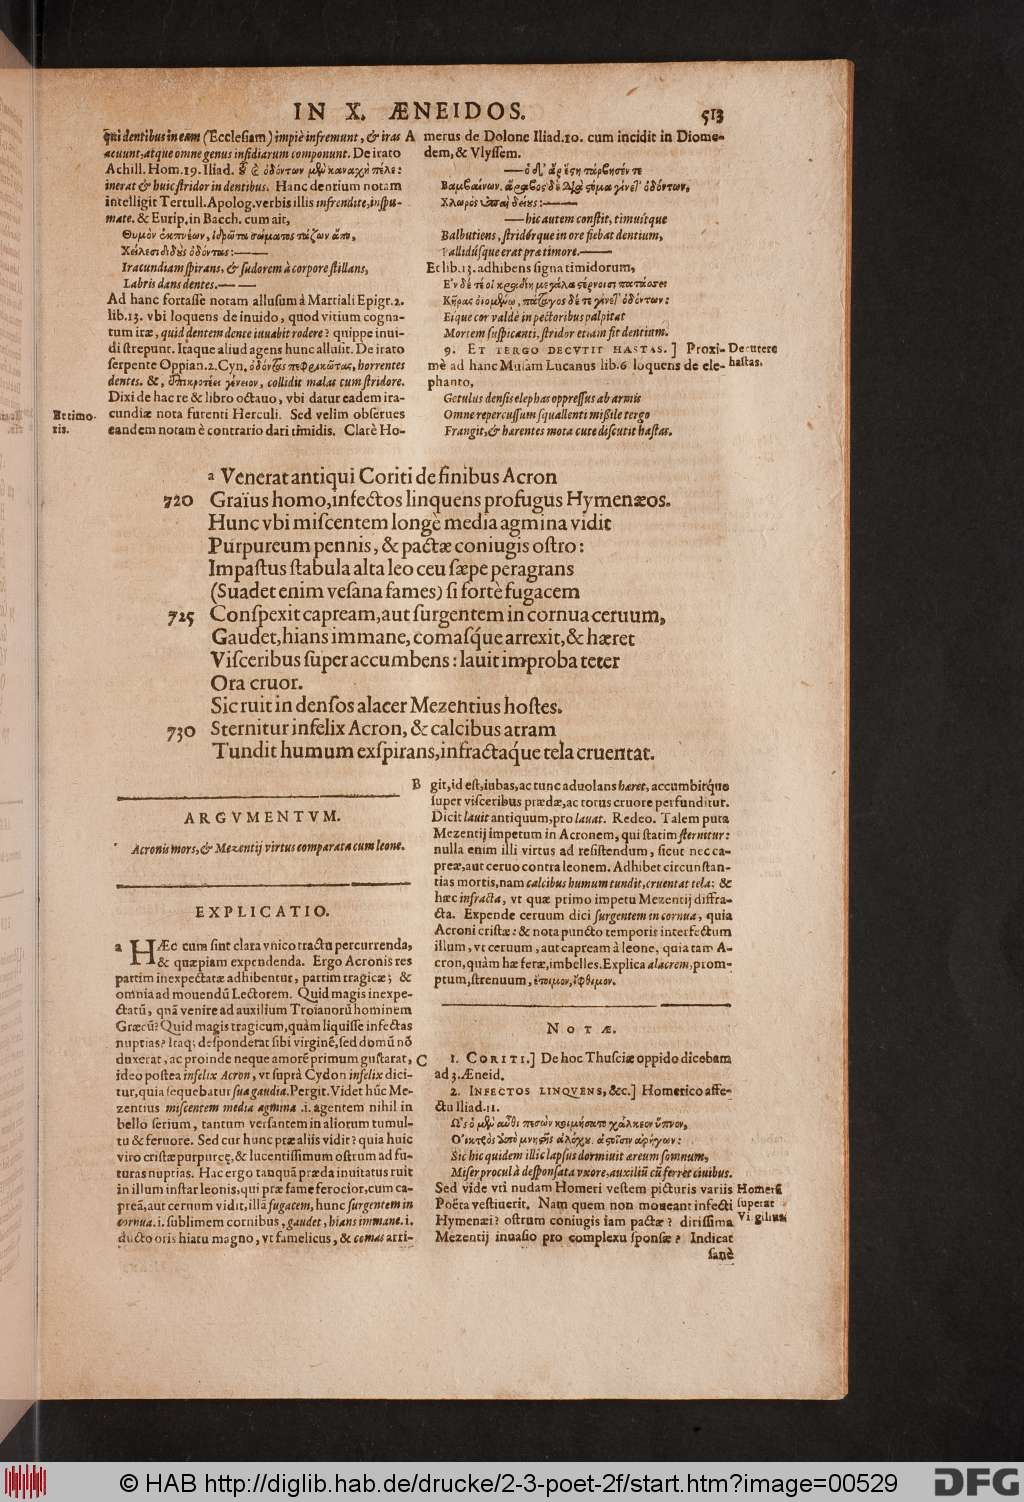 IN X. ÆNEIDOS.
513
qui dentibus in eam (Ecclesiam) impiè infremunt, & iras
acuunt, atque omne genus insidiarum componunt. De irato
Achill. Hom. 19. Iliad. ὀδόντων μὲν καναχὴ πέλε:
inerat & huic stridor in dentibus. Hanc dentium notam
intelligit Tertull. Apolog. verbis illis infrendite, inspu-
mate. & Eurip. in Bacch. cum ait,
Θυμὸν ἐκπνέων, ἱδρῶτα σώματος στάζων ἄπο,
Χείλεσι διδοὺς ὀδόντας:——
Iracundiam spirans, & sudorem à corpore stillans,
Labris dans dentes.——
Ad hanc fortasse notam allusum à Martiali Epigr. 2.
lib. 13. vbi loquens de inuido, quod vitium cogna-
tum iræ, quid dentem dente iuuabit rodere? quippe inui-
di strepunt. Itaque aliud agens hunc allusit. De irato
serpente Oppian. 2. Cyn. ὀδόντας πεφρικῶτας, horrentes
dentes. &, ἐπικροτέει γένειον, collidit malas cum stridore.
Dixi de hac re & libro octauo, vbi datur eadem ira-
cundiæ nota furenti Herculi. Sed velim obserues
eandem notam è contrario dari timidis. Clarè Ho-
A
merus de Dolone Iliad. 10. cum incidit in Diome-
dem, & Vlyssem.
——ὁ δ' ἄρ' ἔστη τάρβησέν τε
Βαμβαίνων. ἄραβος δὲ διὰ στόμα γίνετ' ὀδόντων,
Χλωρὸς ὑπαὶ δείους:——
——hic autem constit, timuitque
Balbutiens, stridórque in ore fiebat dentium,
Pallidúsque erat præ timore.——
Et lib. 13. adhibens signa timidorum,
Ἐν δέ τέ οἱ κραδίη μεγάλα στέρνοισι πατάσσει
Κῆρας ὀιομένῳ, πάταγος δέ τε γίνετ' ὀδόντων:
Eíque cor valdè in pectoribus palpitat
Mortem suspicanti, stridor etiam fit dentium.
9. ET TERGO DECVTIT HASTAS.] Proxi-
mè ad hanc Musam Lucanus lib. 6 loquens de ele-
phanto,
Getulus densis elephas oppressus ab armis
Omne repercussum squallenti missile tergo
Frangit, & hærentes mota cute discutit hastas.
Decutere
hastas.
a Venerat antiqui Coriti de finibus Acron
720 Graïus homo, infectos linquens profugus Hymenæos.
Hunc vbi miscentem longè media agmina vidit
Purpureum pennis, & pactæ coniugis ostro:
Impastus stabula alta leo ceu sæpe peragrans
(Suadet enim vesana fames) si fortè fugacem
725 Conspexit capream, aut surgentem in cornua ceruum,
Gaudet, hians immane, comasq́ue arrexit, & hæret
Visceribus super accumbens: lauit improba teter
Ora cruor.
Sic ruit in densos alacer Mezentius hostes.
730 Sternitur infelix Acron, & calcibus atram
Tundit humum exspirans, infractaq́ue tela cruentat.
ARGVMENTVM.
Acronis mors, & Mezentij virtus comparata cum leone.
EXPLICATIO.
a HÆc cum sint clara vnico tractu percurrenda,
& quæpiam expendenda. Ergo Acronis res
partim inexpectatæ adhibentur, partim tragicæ; &
omnia ad mouendū Lectorem. Quid magis inexpe-
ctatū, quā venire ad auxilium Troianorū hominem
Græcū? Quid magis tragicum, quàm liquisse infectas
nuptias? Itaq; desponderat sibi virginē, sed domū nō
duxerat, ac proinde neque amorē primum gustarat,
ideo postea infelix Acron, vt suprà Cydon infelix dici-
tur, quia sequebatur sua gaudia. Pergit. Videt hūc Me-
zentius miscentem media agmina .i. agentem nihil in
bello serium, tantum versantem in aliorum tumul-
tu & feruore. Sed cur hunc præ aliis vidit? quia huic
viro cristæ purpureę, & lucentissimum ostrum ad fu-
turas nuptias. Hac ergo tanquā præda inuitatus ruit
in illum instar leonis, qui præ fame ferocior, cum ca-
preā, aut ceruum vidit, illā fugacem, hunc surgentem in
cornua .i. sublimem cornibus, gaudet, hians immane .i.
ducto oris hiatu magno, vt famelicus, & comas arri-
B
git, id est, iubas, ac tunc aduolans hæret, accumbitq́ue
super visceribus prædæ, ac totus cruore perfunditur.
Dicit lauit antiquum, pro lauat. Redeo. Talem puta
Mezentij impetum in Acronem, qui statim sternitur:
nulla enim illi virtus ad resistendum, sicut nec ca-
preæ, aut ceruo contra leonem. Adhibet circunstan-
tias mortis, nam calcibus humum tundit, cruentat tela: &
hæc infracta, vt quæ primo impetu Mezentij diffra-
cta. Expende ceruum dici surgentem in cornua, quia
Acroni cristæ: & nota puncto temporis interfectum
illum, vt ceruum, aut capream à leone, quia tam A-
cron, quàm hæ feræ, imbelles. Explica alacrem, prom-
ptum, strenuum, ἕτοιμον, ἴφθιμον.
NOTÆ.
C
1. CORITI.] De hoc Thusciæ oppido dicebam
ad 3. Æneid.
2. INFECTOS LINQVENS, &c.] Homerico affe-
ctu Iliad. 11.
Ὣς ὁ μὲν αὖθι πεσὼν κοιμήσατο χάλκεον ὕπνον,
Οἰκτρὸς ἀπὸ μνηστῆς ἀλόχου. ἀστοῖσιν ἀρήγων:
Sic hic quidem illic lapsus dormiuit æreum somnum,
Miser procul à desponsata vxore, auxiliū cū ferret ciuibus.
Sed vide vti nudam Homeri vestem picturis variis
Poëta vestiuerit. Nam quem non moueant infecti
Hymenæi? ostrum coniugis iam pactæ? dirissima
Mezentij inuasio pro complexu sponsæ? Indicat
sanè
Homerū
superat
Virgilius
© HAB http://diglib.hab.de/drucke/2-3-poet-2f/start.htm?image=00529
DFG